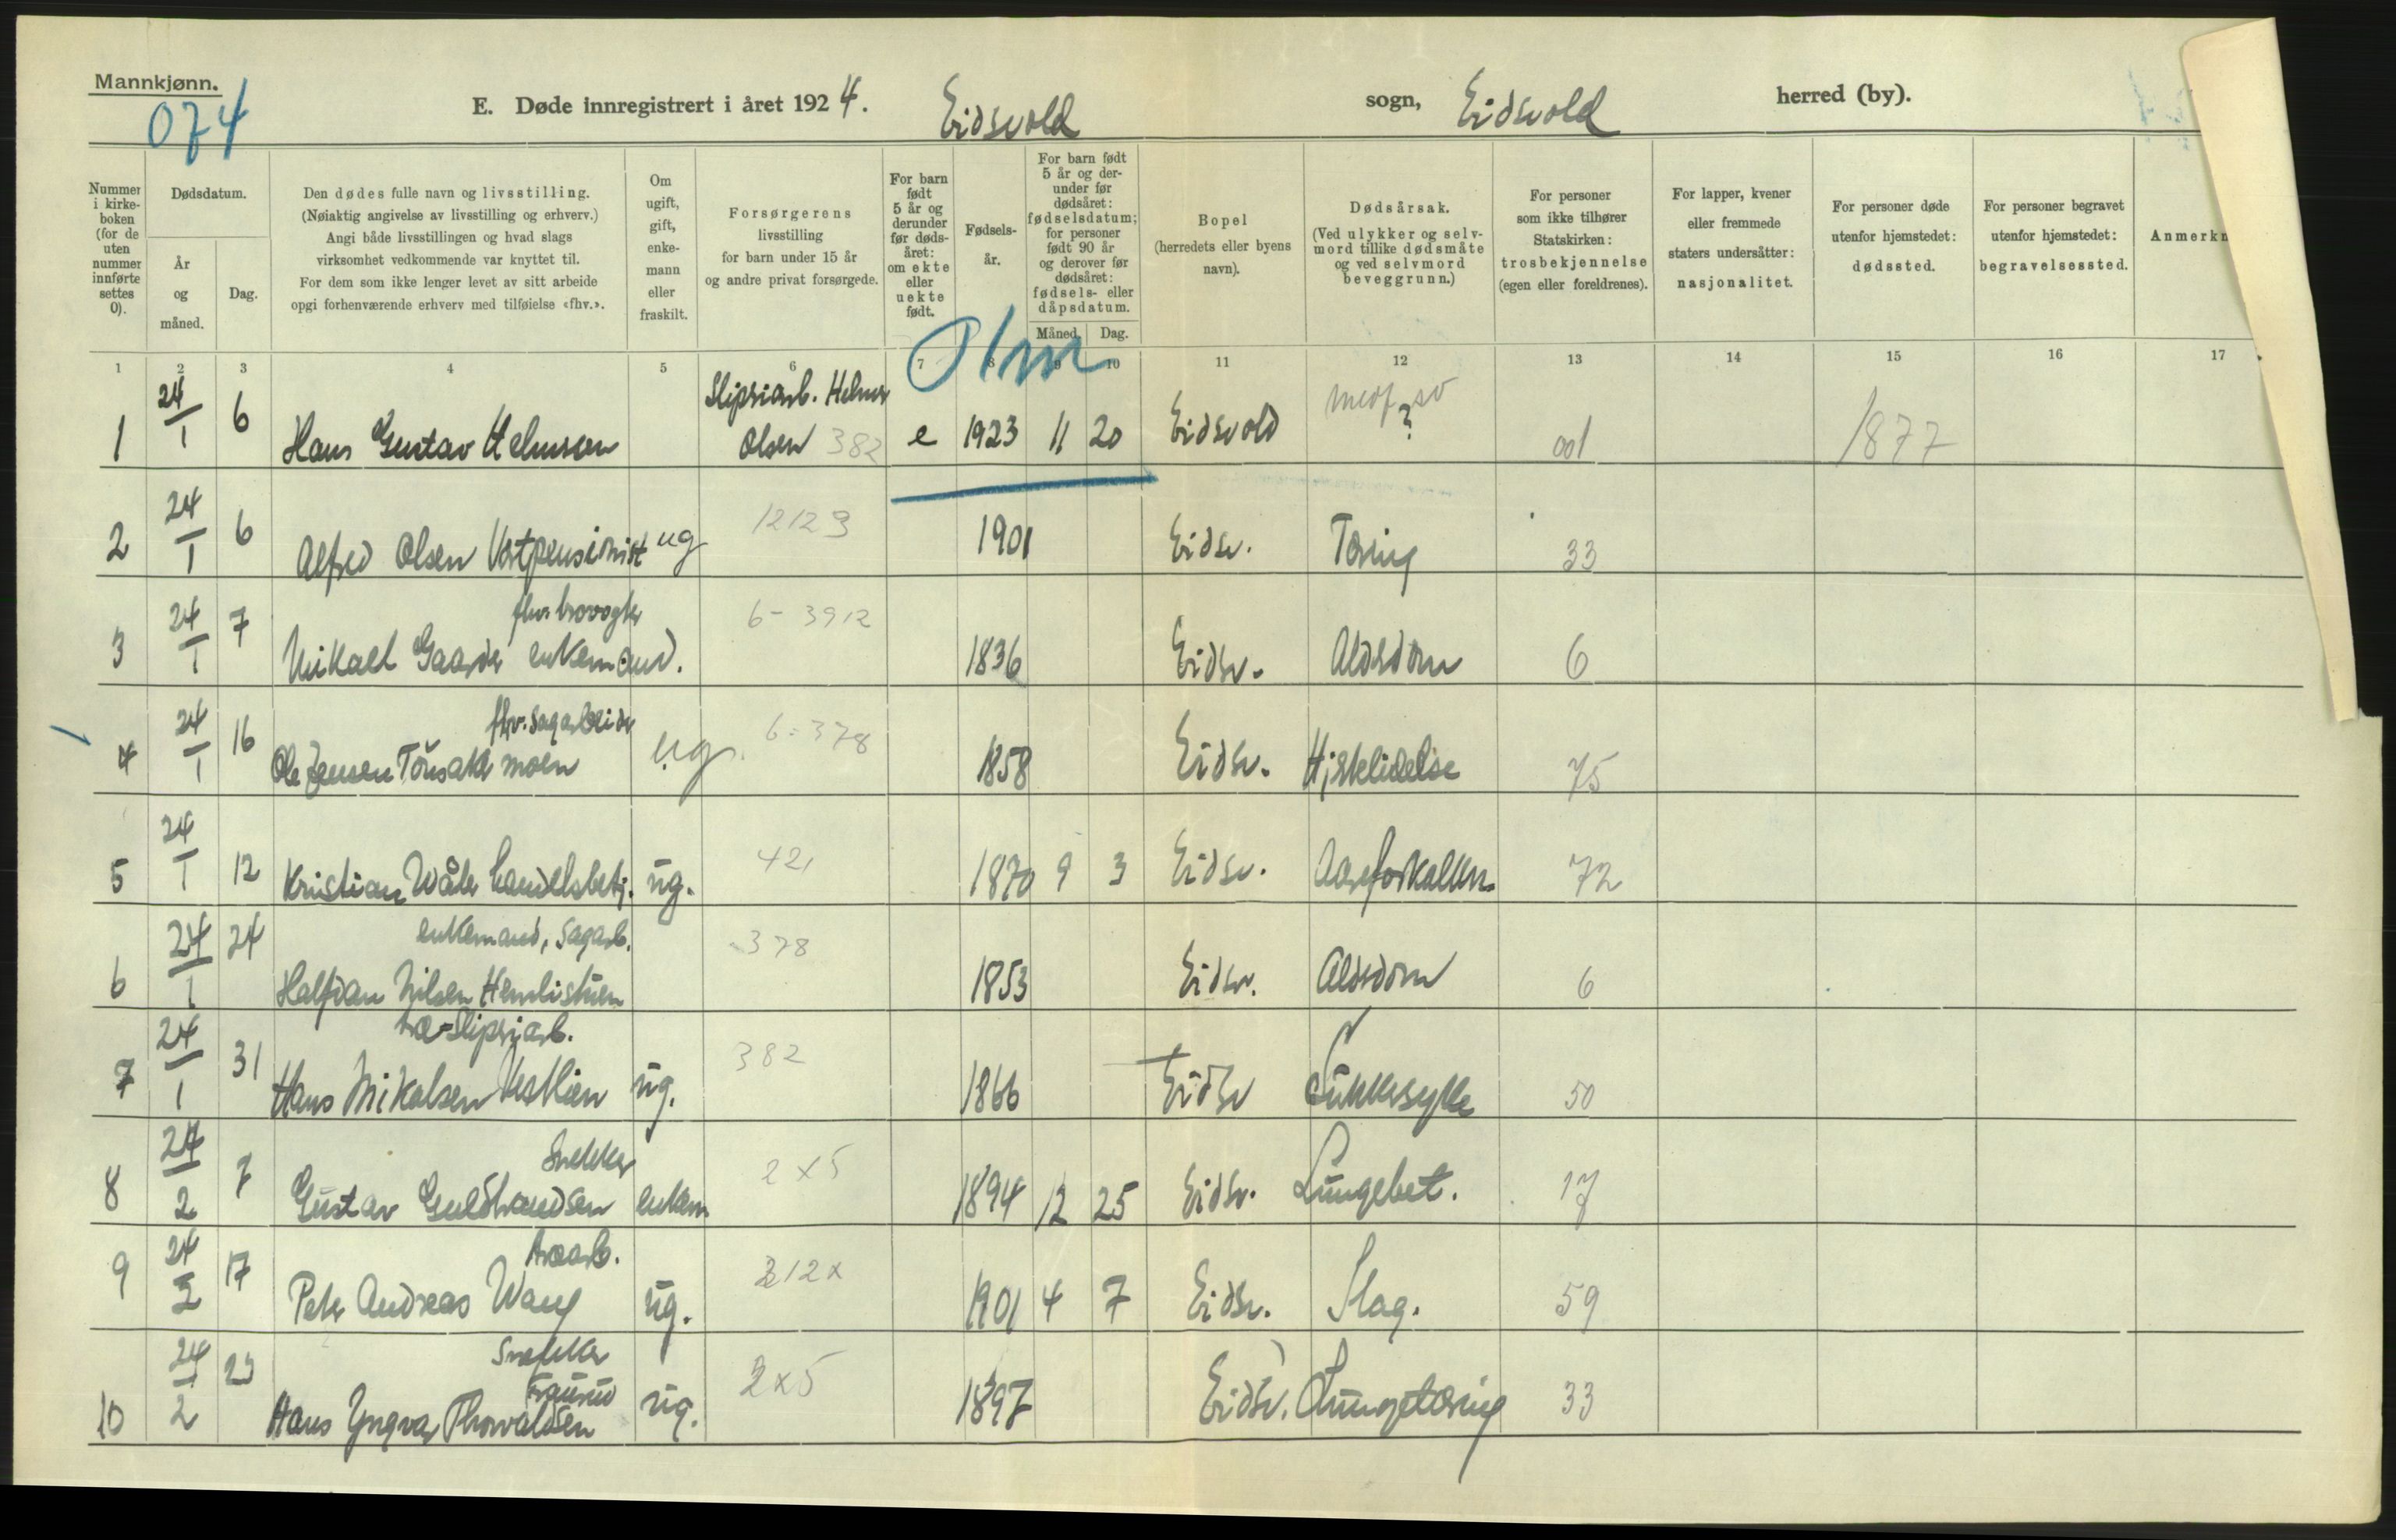 Mannkjønn.
074
E. Døde innregistrert i året 1924. Eidsvold sogn, Eidsvold herred (by).
Nummer i kirkeboken (for de uten nummer innførte settes 0).
Dødsdatum.
År og måned.
Dag.
Den dødes fulle navn og livsstilling.
(Nøiaktig angivelse av livsstilling og erhverv.)
Angi både livsstillingen og hvad slags
virksomhet vedkommende var knyttet til.
For dem som ikke lenger levet av sitt arbeide
opgi forhenværende erhverv med tilføielse «fhv.».
Om ugift, gift, enkemann eller fraskilt.
Forsørgerens
livsstilling
for barn under 15 år
og andre privat forsørgede.
For barn født 5 år og derunder før dødsåret: om ekte eller uekte født.
Fødselsår.
For barn født 5 år og derunder før dødsåret: fødselsdatum; for personer født 90 år og derover før dødsåret: fødsels- eller dåpsdatum.
Måned. Dag.
Bopel
(herredets eller byens
navn).
Dødsårsak.
(Ved ulykker og selvmord tillike dødsmåte
og ved selvmord
beveggrunn.)
For personer
som ikke tilhører
Statskirken:
trosbekjennelse
(egen eller foreldrenes).
For lapper, kvener
eller fremmede
staters undersåtter:
nasjonalitet.
For personer døde
utenfor hjemstedet:
dødssted.
For personer begravet
utenfor hjemstedet:
begravelsessted.
Anmerkn
1 2 3 4 5 6 7 8 9 10 11 12 13 14 15 16 17
1 24/1 6 Hans Gustav Helmson Slipriarb. Helmer Olsen 382 e 1923 11 20 Eidsvold ? 001 1877
2 24/1 6 Alfred Olsen ug 1212 9 1901 Eidsv. Tæring 33
fhv.
3 24/1 7 Mikael Gaarder enkemand. 6- 3912 1836 Eidsv. Alderdom 6
fhv. sagarbeider
4 24/1 16 Ole Jensen moen ug. 6 = 378 1858 Eidsv. Hjertelidelse 75
5 24/1 12 Kristian Wåler handelsbetj. ug. 421 1870 9 3 Eidsv. Aareforkalkn. 72
enkemand, sagarb.
6 24/1 24 Halfdan Nilsen Hemlistuen 378 1853 Eidsv. Alderdom 6
Træ-Slipriarb.
7 24/1 31 Hans Mikalsen ug. 382 1866 Eidsv Sukkersyke 50
Snekker
8 24/2 7 Gustav Guldbrandsen enkem 2 x 5 1894 12 25 Eidsv. Lungebet. 17
9 24/2 17 Peter Andreas Wang ug. 212x 1901 4 7 Eidsv. Slag. 59
Snekker
10 24/2 Hans Yngvar Thorvaldsen ug. 2x5 1897 Eidsv. Lungetæring 33